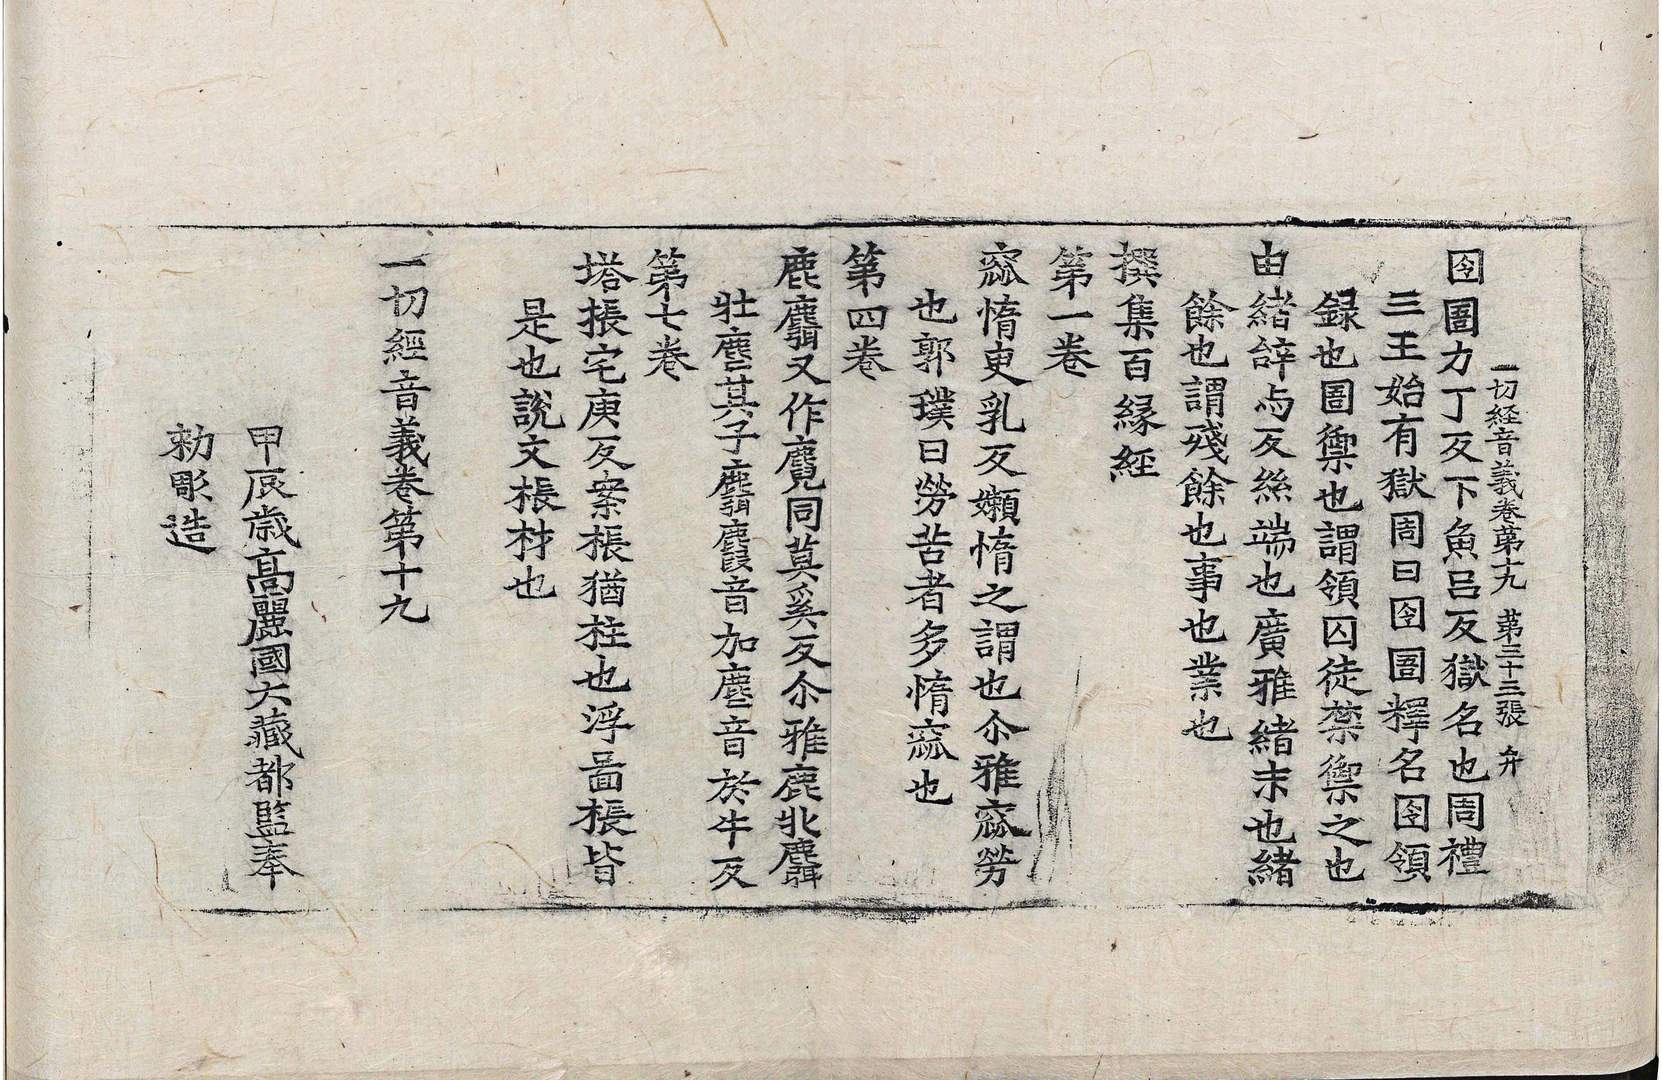 一切経音義卷第十九 第三十三張 弁
囹圄力丁反下魚吕反獄名也周禮
三王始有獄周曰囹圄釋名囹領
録也圄禦也謂領囚徒禁禦之也
由緒辝与反絲端也廣雅緒末也緒
餘也謂殘餘也事也業也
撰集百緣經
第一卷
窳惰臾乳反嬾惰之謂也尒雅窳勞
也郭璞曰勞苦者多惰窳也
第四卷
鹿麛又作麑同莫奚反尒雅鹿牝麀
牡麈其子麛麚音加麈音於牛反
第七卷
塔棖宅庚反案棖猶柱也浮圖棖皆
是也說文棖材也
一切經音義卷第十九
甲辰歳高麗國大藏都監奉
勑彫造